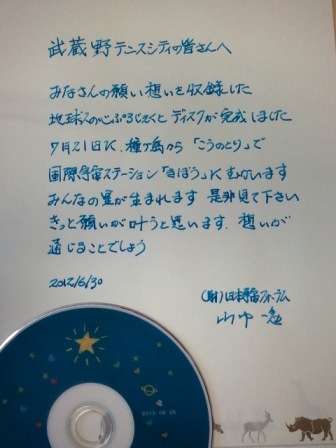 武蔵野テニスシティの皆さんへ
みなさんの願い想いを収録した
地球人の心ぷろじぇくと ディスクが完成しました
7月21日に、種子島から「こうのとり」で
国際宇宙ステーション「きぼう」にむかいます
みんなの星が生まれます 是非見て下さい
きっと願いが叶うと思います、想いが
通じることでしょう
2012/6/30
(財)日本宇宙フォーラム
山中 勉
2012 06 20